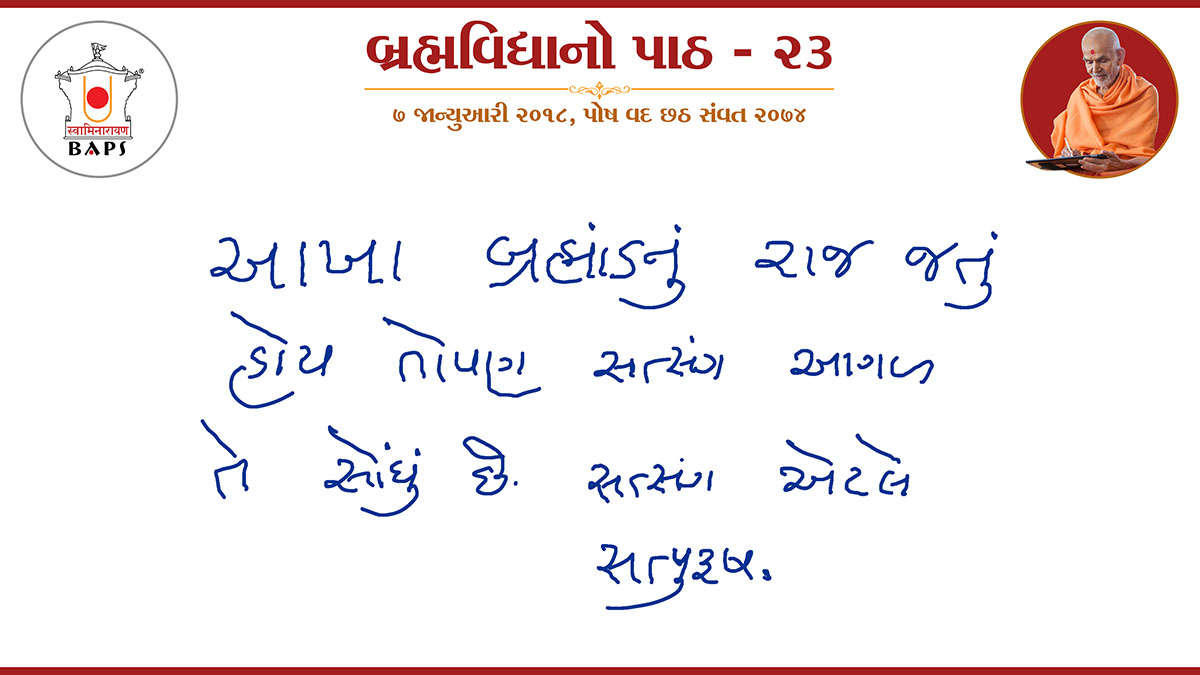 બ્રહ્મવિદ્યાનો પાઠ - ૨૩
૭ જાન્યુઆરી ૨૦૧૮, પોષ વદ છઠ સંવત ૨૦૭૪
स्वामिनारायण
®
BAPS
આખા બ્રહ્માંડનું રાજ જતું
હોય તોપણ સત્સંગ આગળ
તે સોંઘું છે. સત્સંગ એટલે
સત્પુરૂષ.